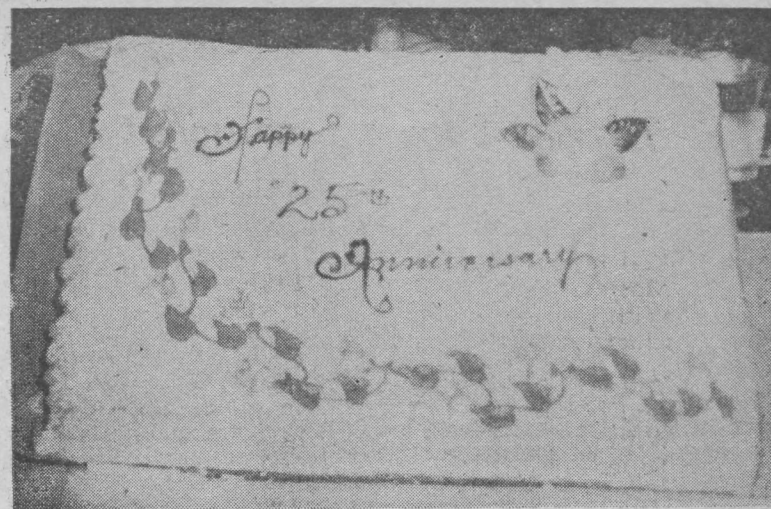 Happy
25th
Anniversary